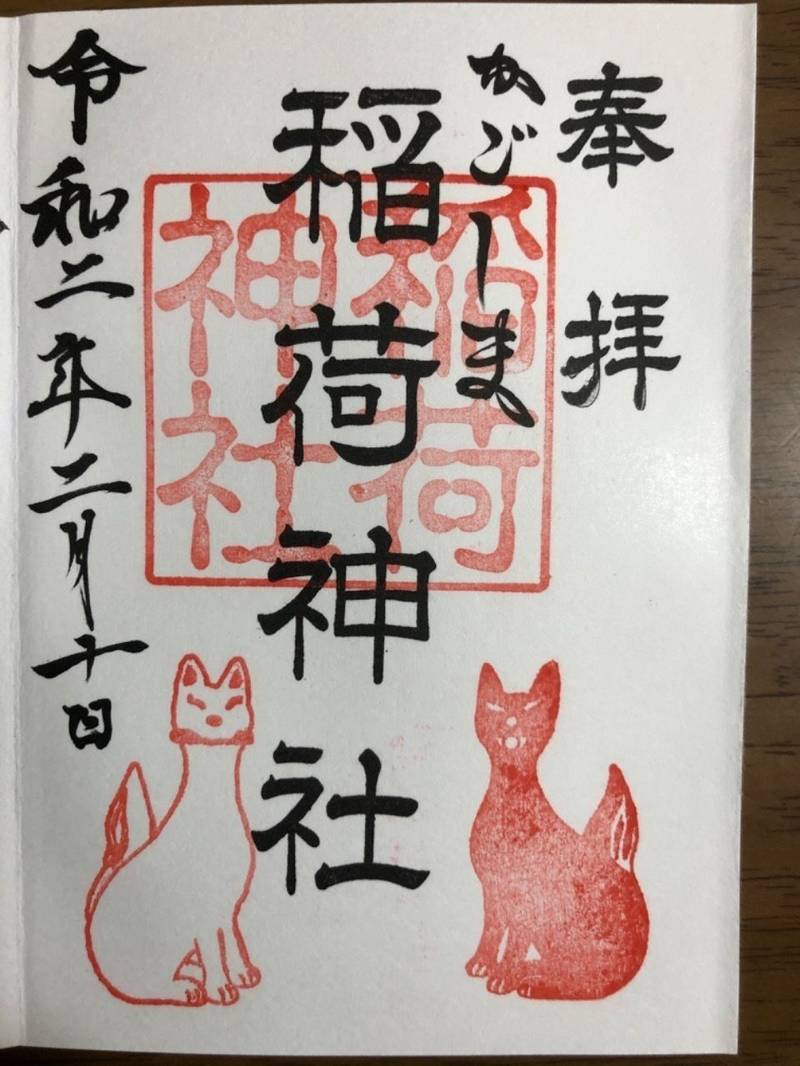 奉拝
かごしま
稲荷神社
稲荷
神社
令和二年二月十日